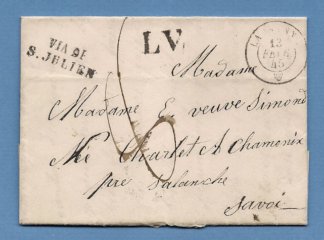 VIA DI
S. JULIEN
L.V.
13
45
Madame
Madame E veuve Simond
Née Charlet à Chamonix
pré Salanche
Savoi